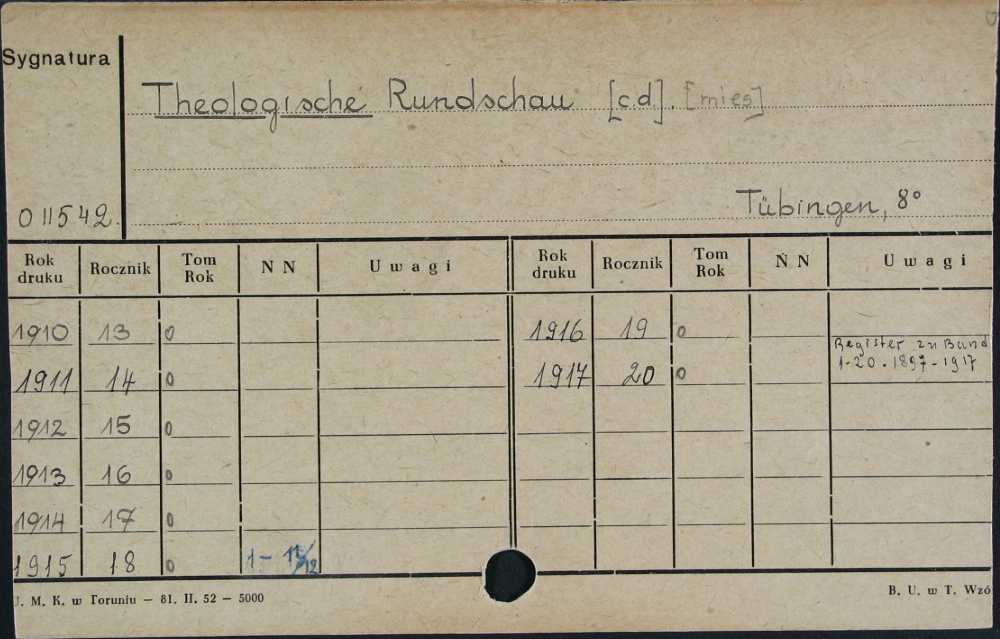 Sygnatura
Theologische Rundschau [c.d]. [mies]
011542.
Tübingen, 8°
Rok druku Rocznik Tom Rok N N Uwagi Rok druku Rocznik Tom Rok N N Uwagi
1910 13 0 1916 19 0
Register zu Band
1-20. 1897-1917
1911 14 0 1917 20 0
1912 15 0
1913 16 0
1914 17 0
1915 18 0 1- 11/12
U. M. K. w Toruniu — 81. II. 52 — 5000 B. U. w T. Wzó